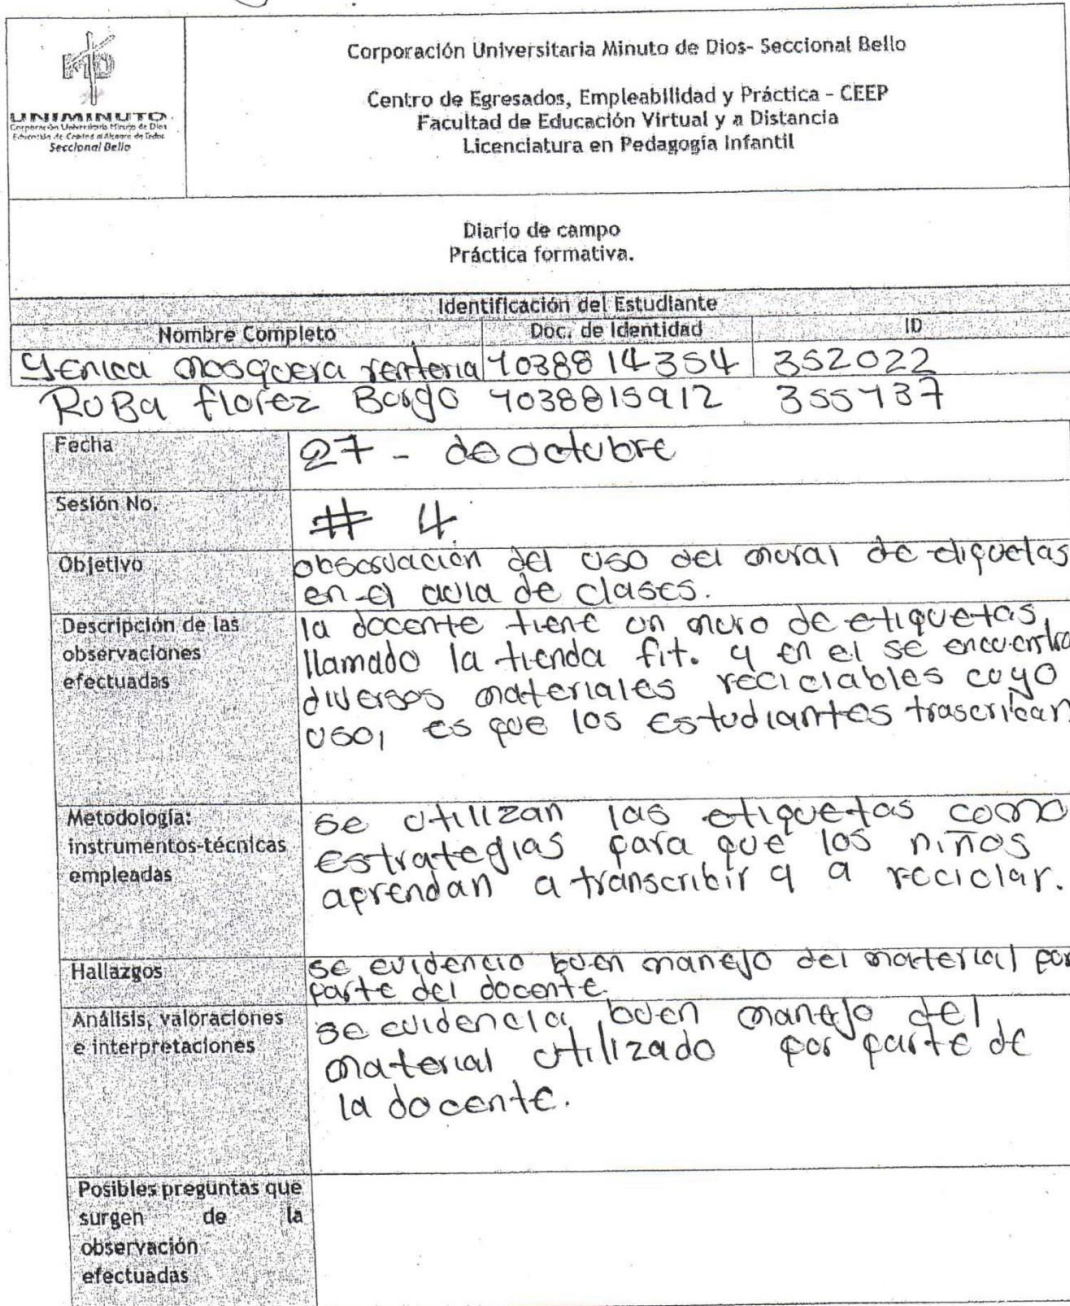 UNIMINUTO
Corporación Universitaria Minuto de Dios
Educación de Calidad al Alcance de Todos
Seccional Bello
Corporación Universitaria Minuto de Dios- Seccional Bello
Centro de Egresados, Empleabilidad y Práctica - CEEP
Facultad de Educación Virtual y a Distancia
Licenciatura en Pedagogía Infantil
Diario de campo
Práctica formativa.
Identificación del Estudiante
Nombre Completo Doc. de Identidad ID
Yenica mosquera renteria 1038814354 352022
florez 1038815912 355737
Fecha 27 - de octubre
Sesión No. # 4
Objetivo observación del uso del mural de etiquetas
en el aula de clases.
Descripción de las observaciones efectuadas
la docente tiene un muro de etiquetas,
llamado la tienda fit. y en el se encuentra
diversos materiales reciclables cuyo
uso, es que los estudiantes trascriban
Metodología: instrumentos-técnicas empleadas
se utilizan las etiquetas como
estrategias para que los niños
aprendan a transcribir y a reciclar.
Hallazgos se evidencio buen manejo del material por
parte del docente.
Análisis, valoraciones e interpretaciones
se evidencia buen manejo del
material utilizado por parte de
la docente.
Posibles preguntas que
surgen de la
observación
efectuadas